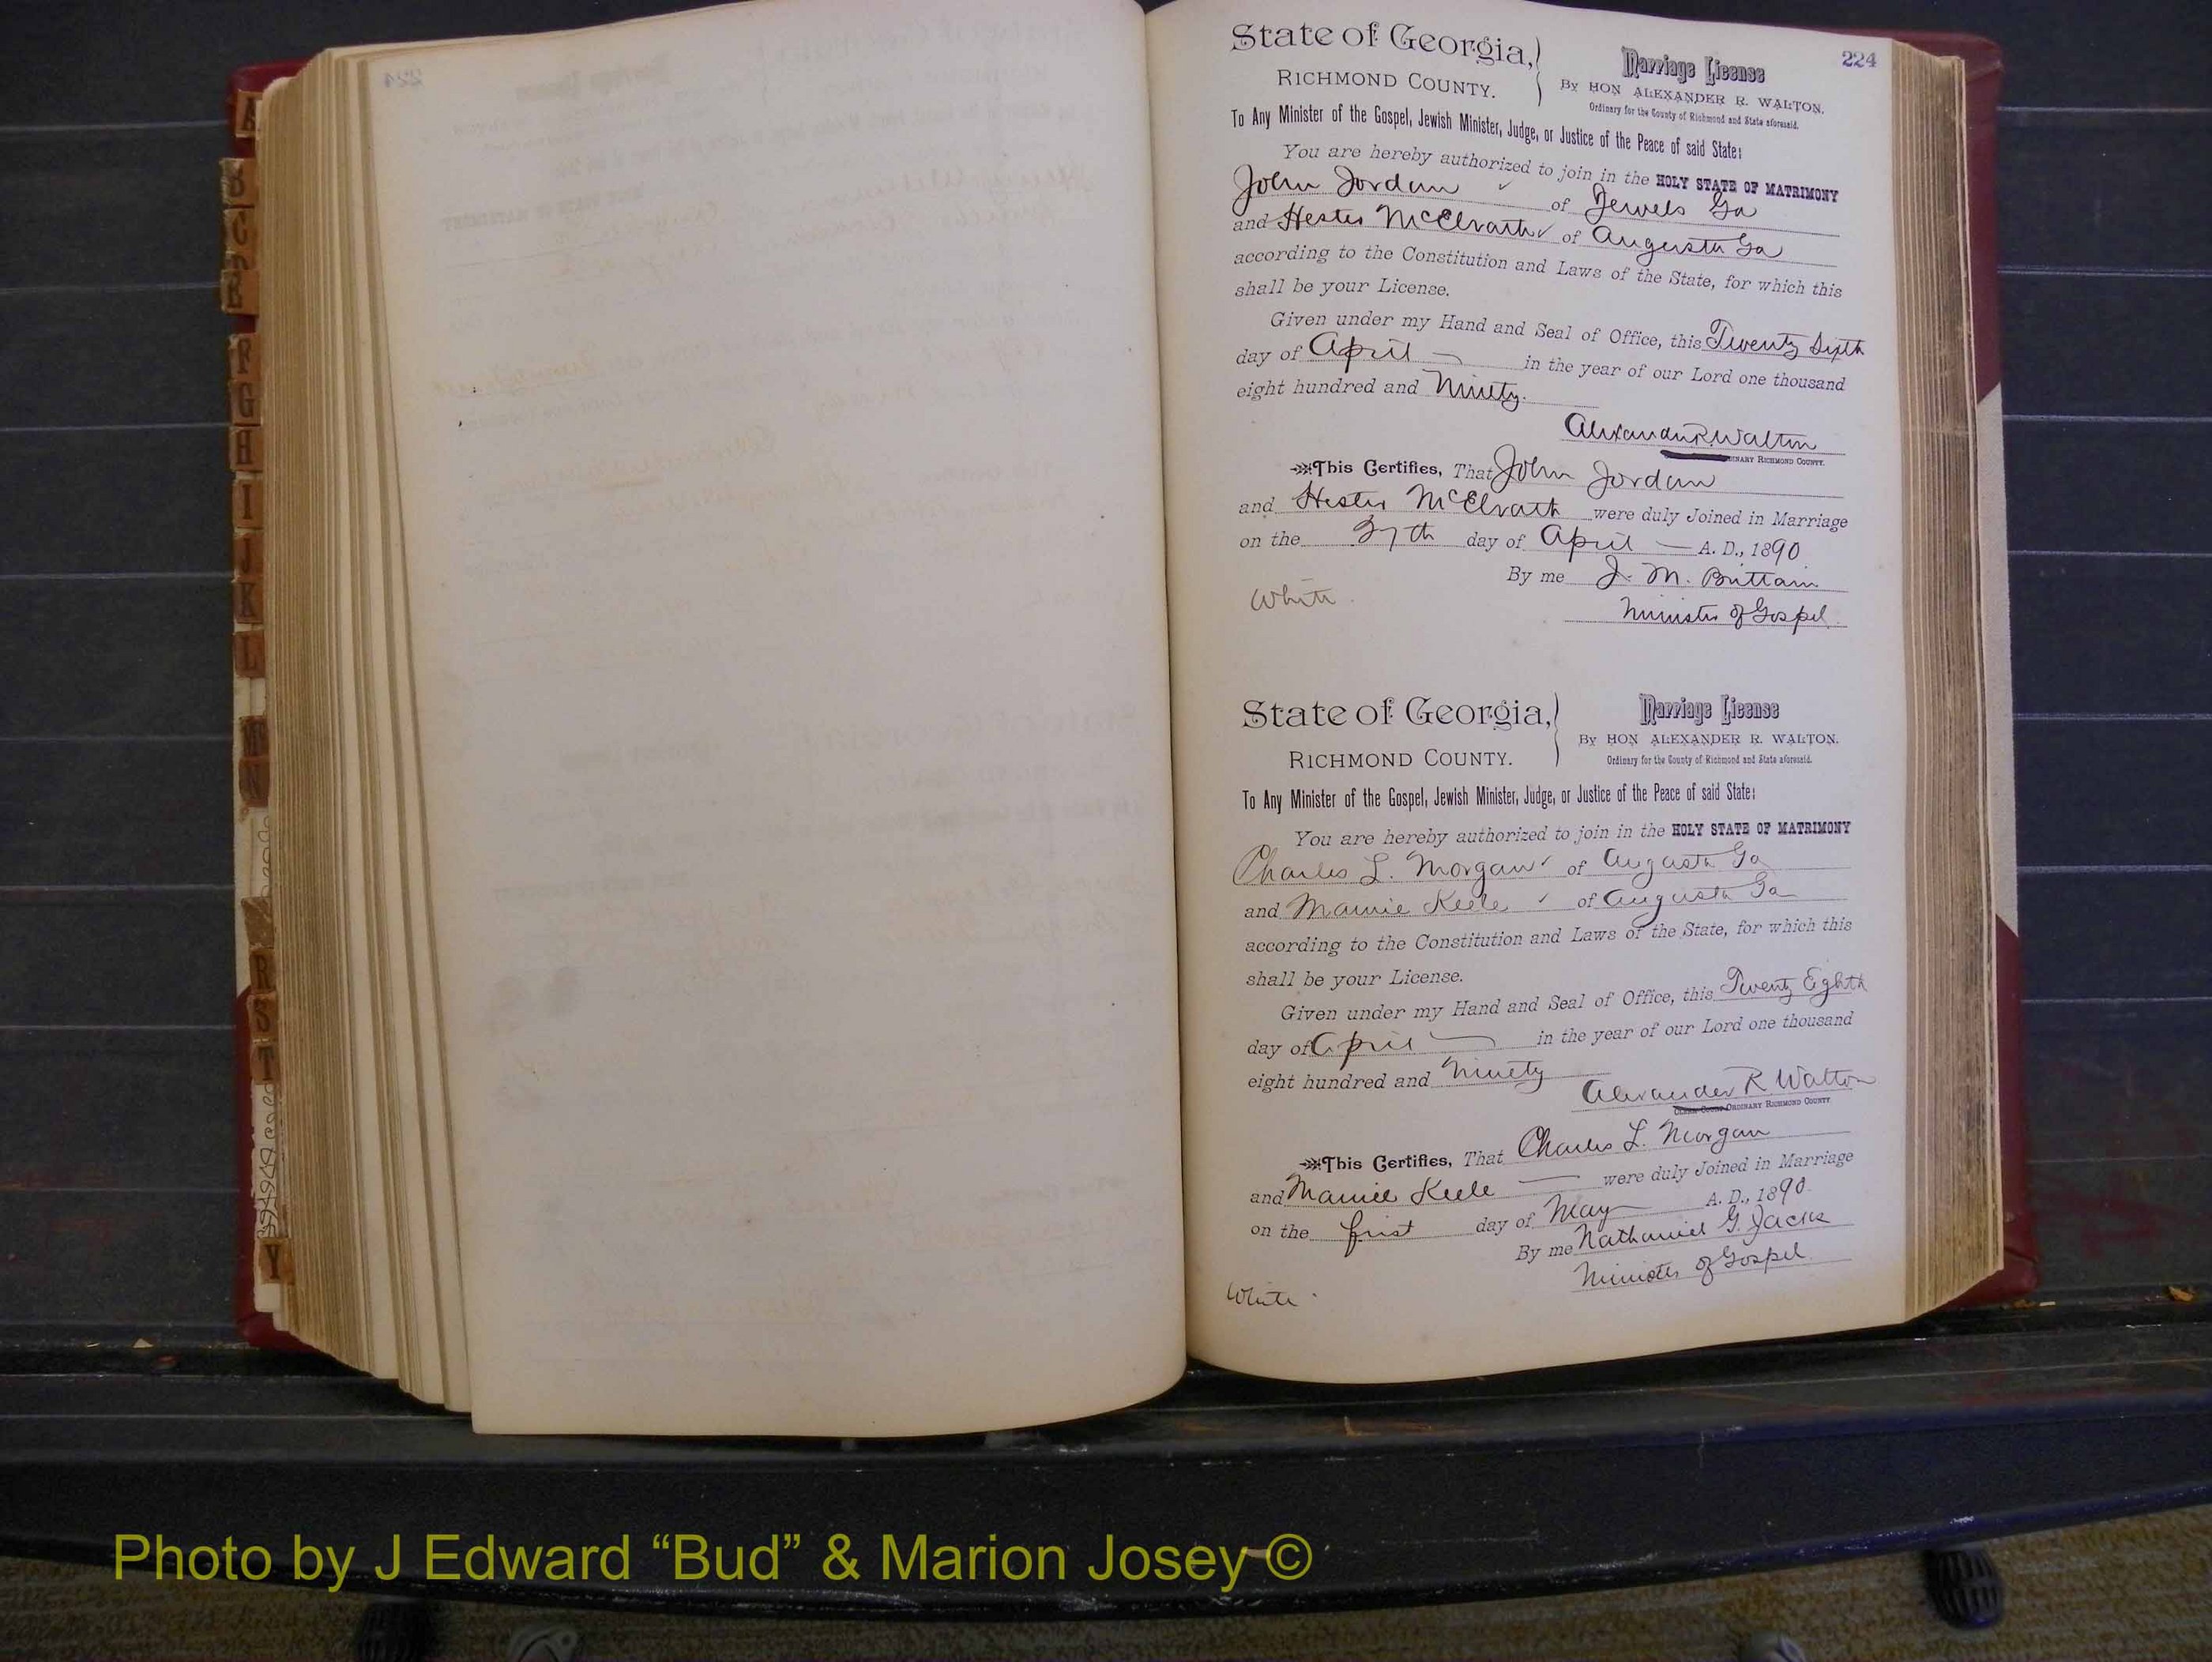 A
B
C
D
E
F
G
H
I
J
K
L
M
N
R
S
T
Y
224
State of Georgia,
RICHMOND COUNTY.
Marriage License
By HON ALEXANDER R. WALTON.
Ordinary for the County of Richmond and State aforesaid.
To Any Minister of the Gospel, Jewish Minister, Judge, or Justice of the Peace of said State:
You are hereby authorized to join in the HOLY STATE OF MATRIMONY
John Jordan ✓ of Jewels Ga
and Hester McElrath ✓ of Augusta Ga
according to the Constitution and Laws of the State, for which this
shall be your License.
Given under my Hand and Seal of Office, this Twenty Sixth
day of April in the year of our Lord one thousand
eight hundred and Ninety.
Alexander R. Walton
ORDINARY RICHMOND COUNTY.
This Certifies, That John Jordan
and Hester McElrath were duly Joined in Marriage
on the 27th day of April A. D., 1890
By me J. M. Brittain
Minister of Gospel.
White.
State of Georgia,
RICHMOND COUNTY.
Marriage License
By HON ALEXANDER R. WALTON.
Ordinary for the County of Richmond and State aforesaid.
To Any Minister of the Gospel, Jewish Minister, Judge, or Justice of the Peace of said State:
You are hereby authorized to join in the HOLY STATE OF MATRIMONY
Charles L. Morgan ✓ of Augusta Ga
and Mamie Keele ✓ of Augusta Ga
according to the Constitution and Laws of the State, for which this
shall be your License.
Given under my Hand and Seal of Office, this Twenty Eighth
day of April in the year of our Lord one thousand
eight hundred and Ninety
Alexander R. Walton
ORDINARY RICHMOND COUNTY
This Certifies, That Charles L. Morgan
and Mamie Keele were duly Joined in Marriage
on the first day of May A. D., 1890.
By me Nathaniel G. Jacks
Minister of Gospel
White.
Photo by J Edward “Bud” & Marion Josey ©